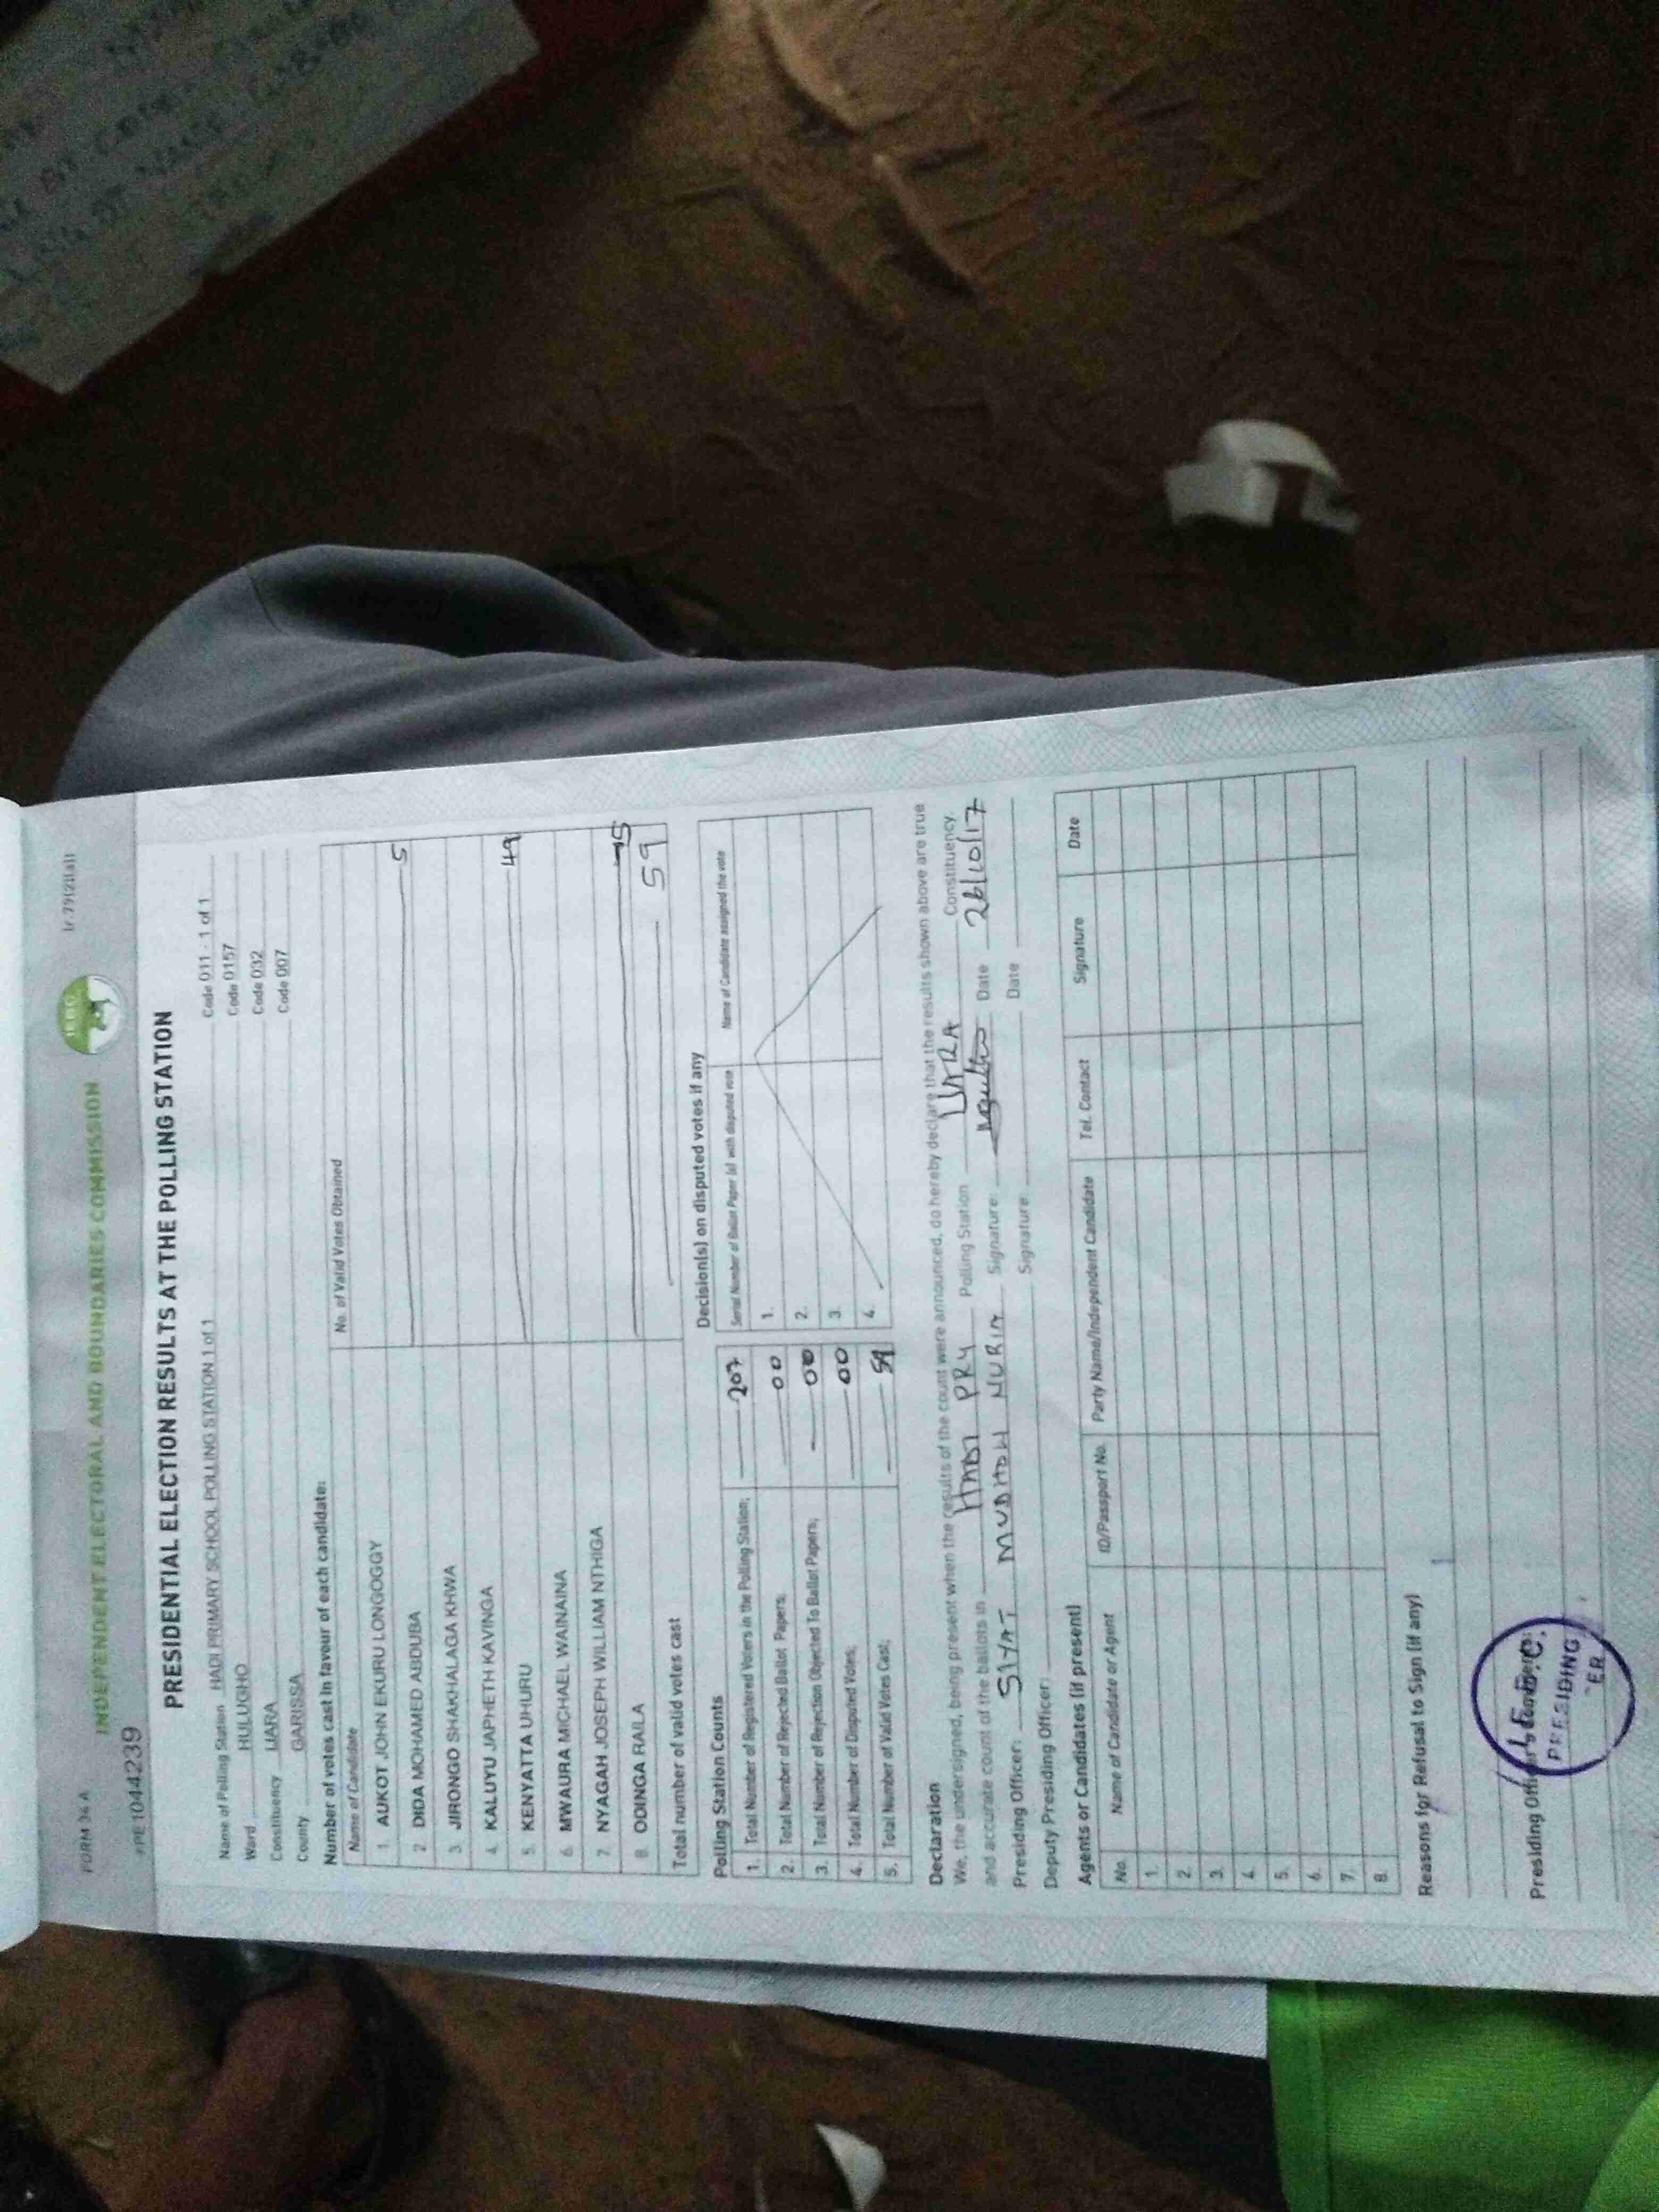 FORM 34 A
(r.79(2)(a))
INDEPENDENT ELECTORAL AND BOUNDARIES COMMISSION
IEBC
PRE1044239
PRESIDENTIAL ELECTION RESULTS AT THE POLLING STATION
Name of Polling Station HADI PRIMARY SCHOOL POLLING STATION 1 of 1 Code 011 - 1 of 1
Ward HULUGHO Code 0157
Constituency IJARA Code 032
County GARISSA Code 007
Number of votes cast in favour of each candidate:
Name of Candidate No. of Valid Votes Obtained
1 AUKOT JOHN EKURU LONGOGGY
2 DIDA MOHAMED ABDUBA 5
3 JIRONGO SHAKHALAGA KHWA
4 KALUYU JAPHETH KAVINGA
5. KENYATTA UHURU 49
6. MWAURA MICHAEL WAINAINA
7. NYAGAH JOSEPH WILLIAM NTHIGA
8. ODINGA RAILA 5
Total number of valid votes cast 59
Polling Station Counts
1. Total Number of Registered Voters in the Polling Station; 207
2. Total Number of Rejected Ballot Papers; 00
3. Total Number of Rejection Objected To Ballot Papers; 00
4. Total Number of Disputed Votes; 00
5. Total Number of Valid Votes Cast; 59
Decision(s) on disputed votes if any
Serial Number of Ballot Paper (s) with disputed vote Name of Candidate assigned the vote
1.
2.
3.
4.
Declaration
We, the undersigned, being present when the results of the count were announced, do hereby declare that the results shown above are true
and accurate count of the ballots in HADI PRY Polling Station IJARA Constituency.
Presiding Officer: SIYAT MUDHOW NURIA Signature: Date 26/10/17
Deputy Presiding Officer: Signature: Date
Agents or Candidates (if present)
No. Name of Candidate or Agent ID/Passport No. Party Name/Independent Candidate Tel. Contact Signature Date
1.
2.
3.
4.
5.
6.
7.
8.
Reasons for Refusal to Sign (if any)
Presiding Officer's Comments:
I.E.B.C.
PRESIDING
ER